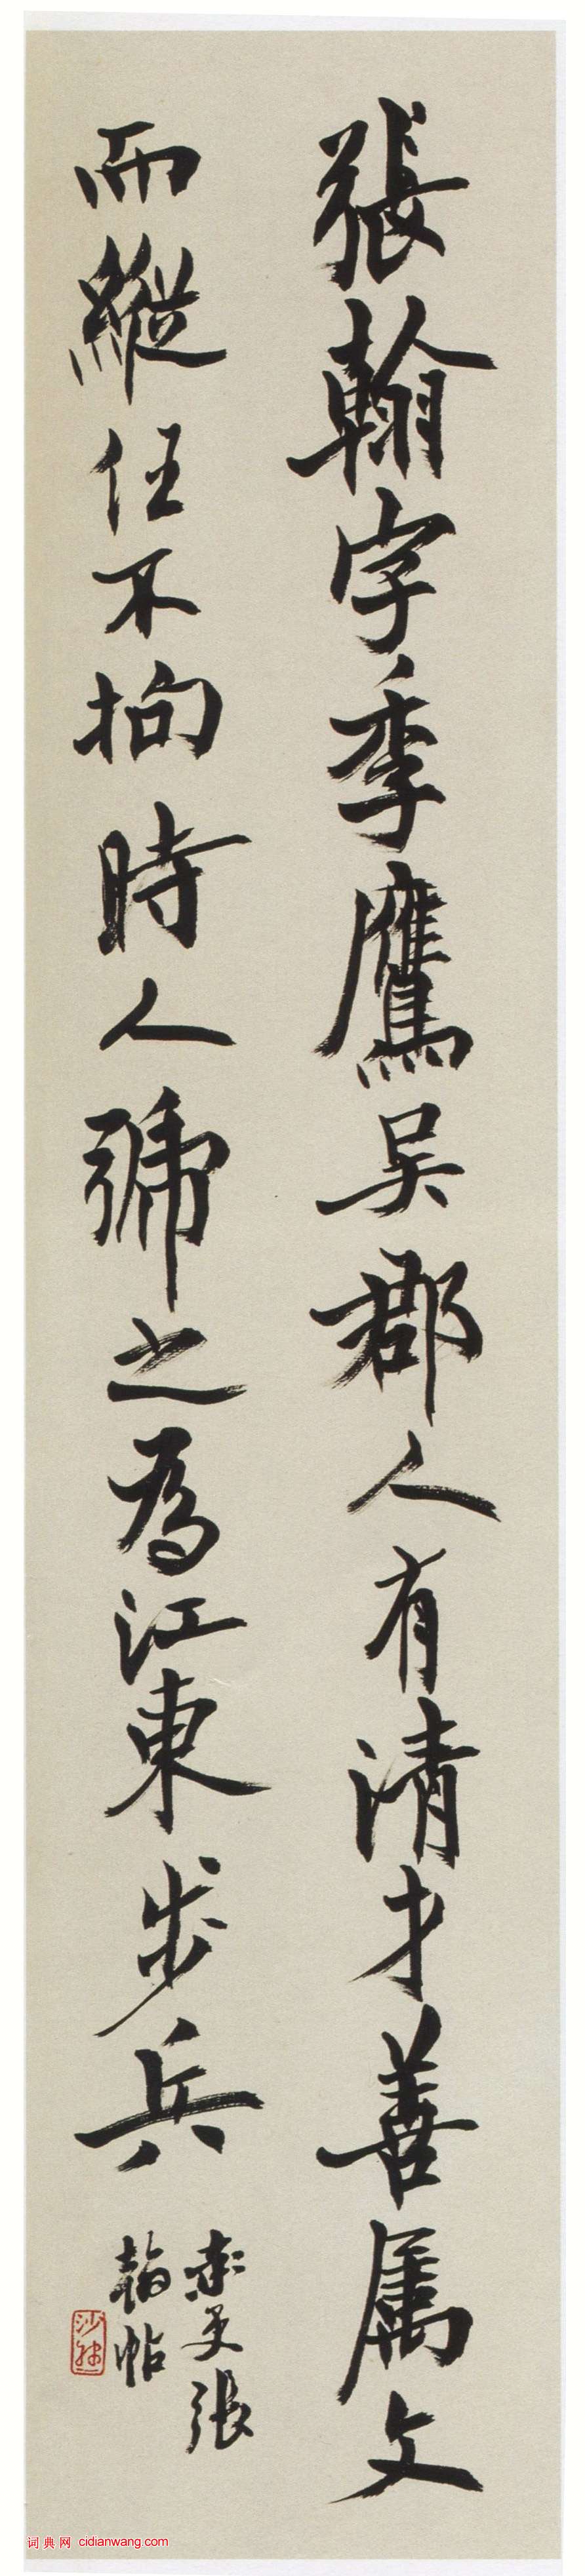 張翰字季鷹吳郡人有清才善属文
而縱任不拘時人號之為江東步兵
張
翰帖
沙
词典网 cidianwang.com